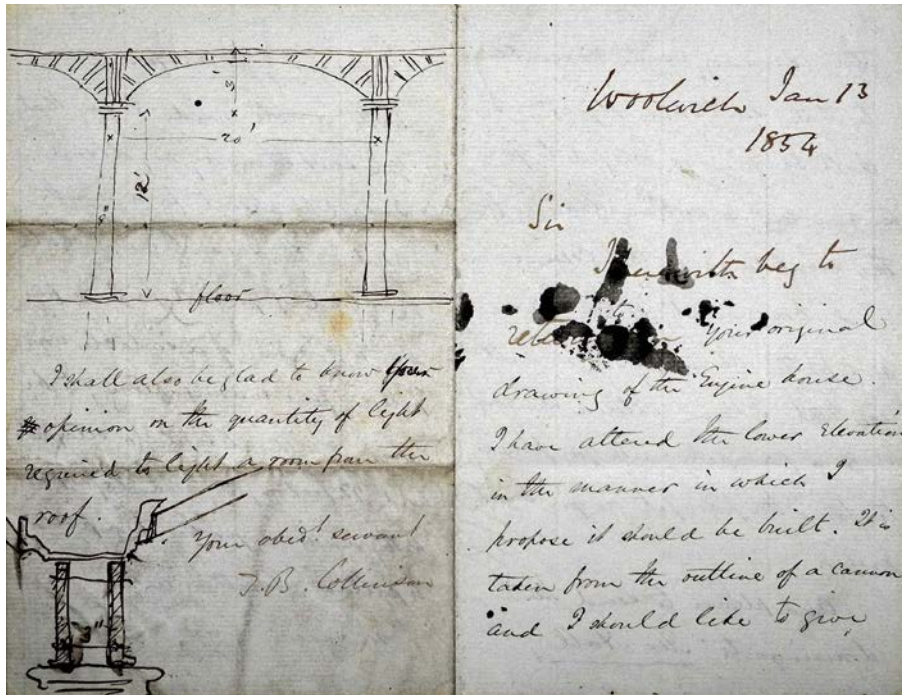 3'
20'
12'
9"
floor
I shall also be glad to know your
opinion on the quantity of light
required to light a room from the
roof.
Your obedt servant
T. B. Collinson
3"
Woolwich Jan 13
1854
Sir
I herewith beg to
return your original
drawing of the Engine house.
I have altered the lower Elevation
in the manner in which I
propose it should be built. It is
taken from the outline of a cannon
and I should like to give